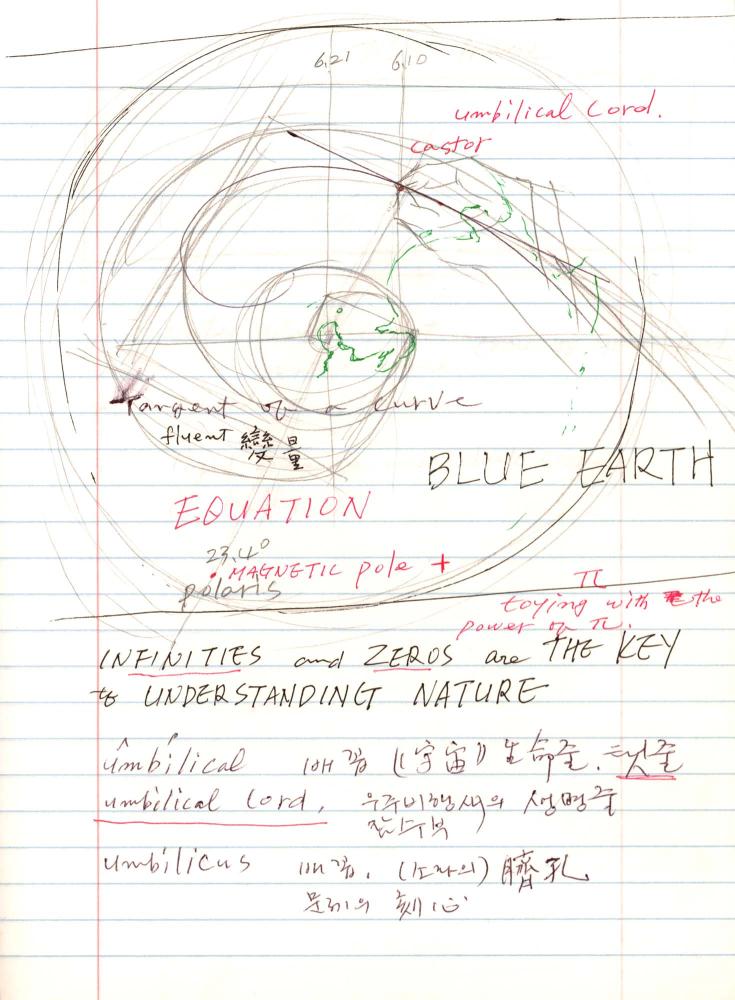 6.21 6.10
umbilical cord.
castor
Tangent of a curve
fluent 變量
BLUE EARTH
EQUATION
23.4°
MAGNETIC pole +
polaris
π
toying with the
power of π.
INFINITIES and ZEROS are THE KEY
to UNDERSTANDING NATURE
umbilical 배꼽 (宇宙) 生命줄. 탯줄
umbilical cord, 우주비행사의 생명줄
잠수부
umbilicus 배꼽. 臍
문제의